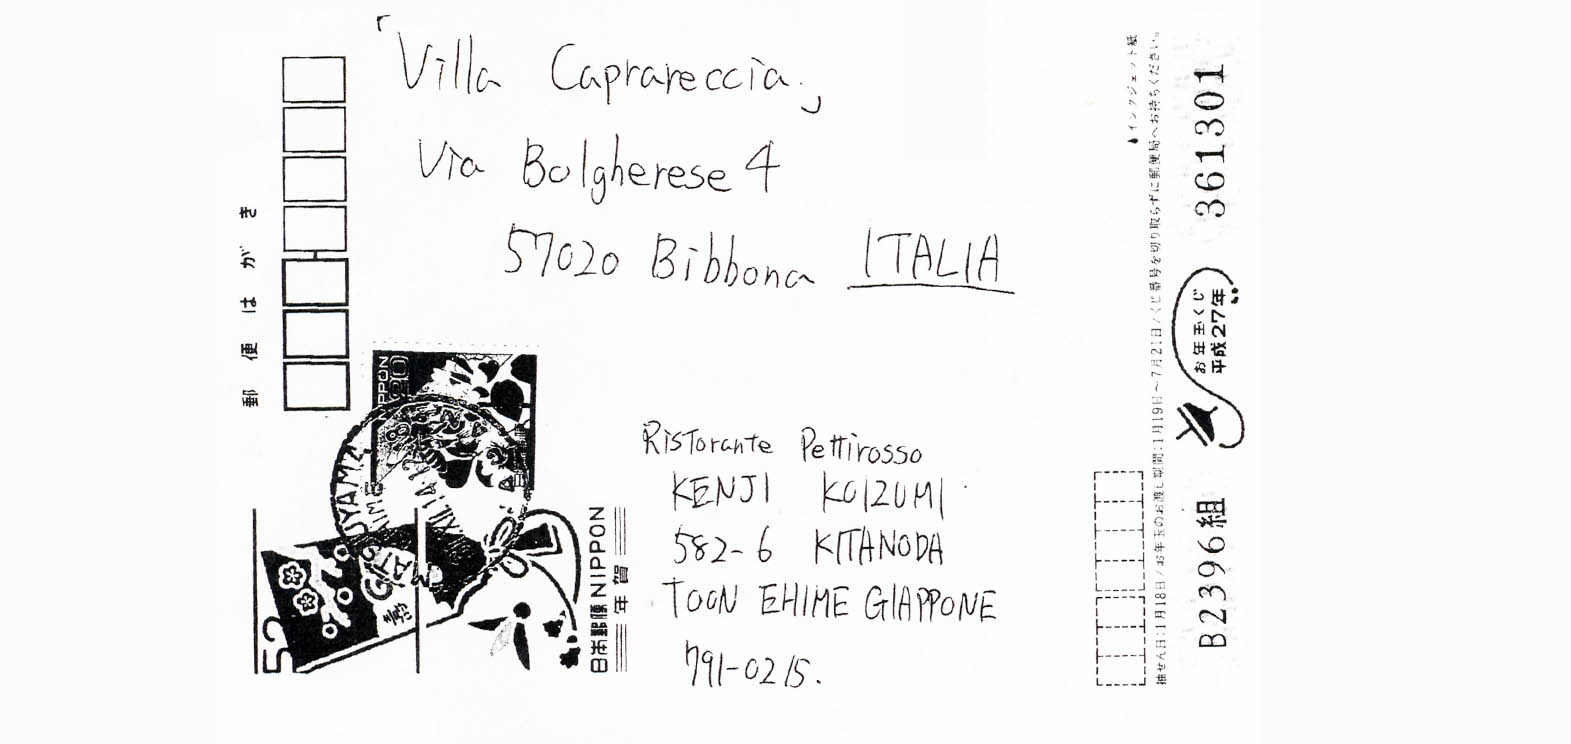 「Villa Caprareccia.」
Via Bolgherese 4
57020 Bibbona ITALIA
Ristorante Pettirosso
KENJI KOIZUMI
582-6 KITANODA
TOON EHIME GIAPPONE
791-0215.
郵便はがき
NIPPON
52
日本郵便 NIPPON
年賀
インクジェット紙
抽せん日:1月18日/お年玉のお渡し期間:1月19日〜7月21日/くじ番号を切り取らずに郵便局へお持ちください。
お年玉くじ
平成27年
B2396組 361301